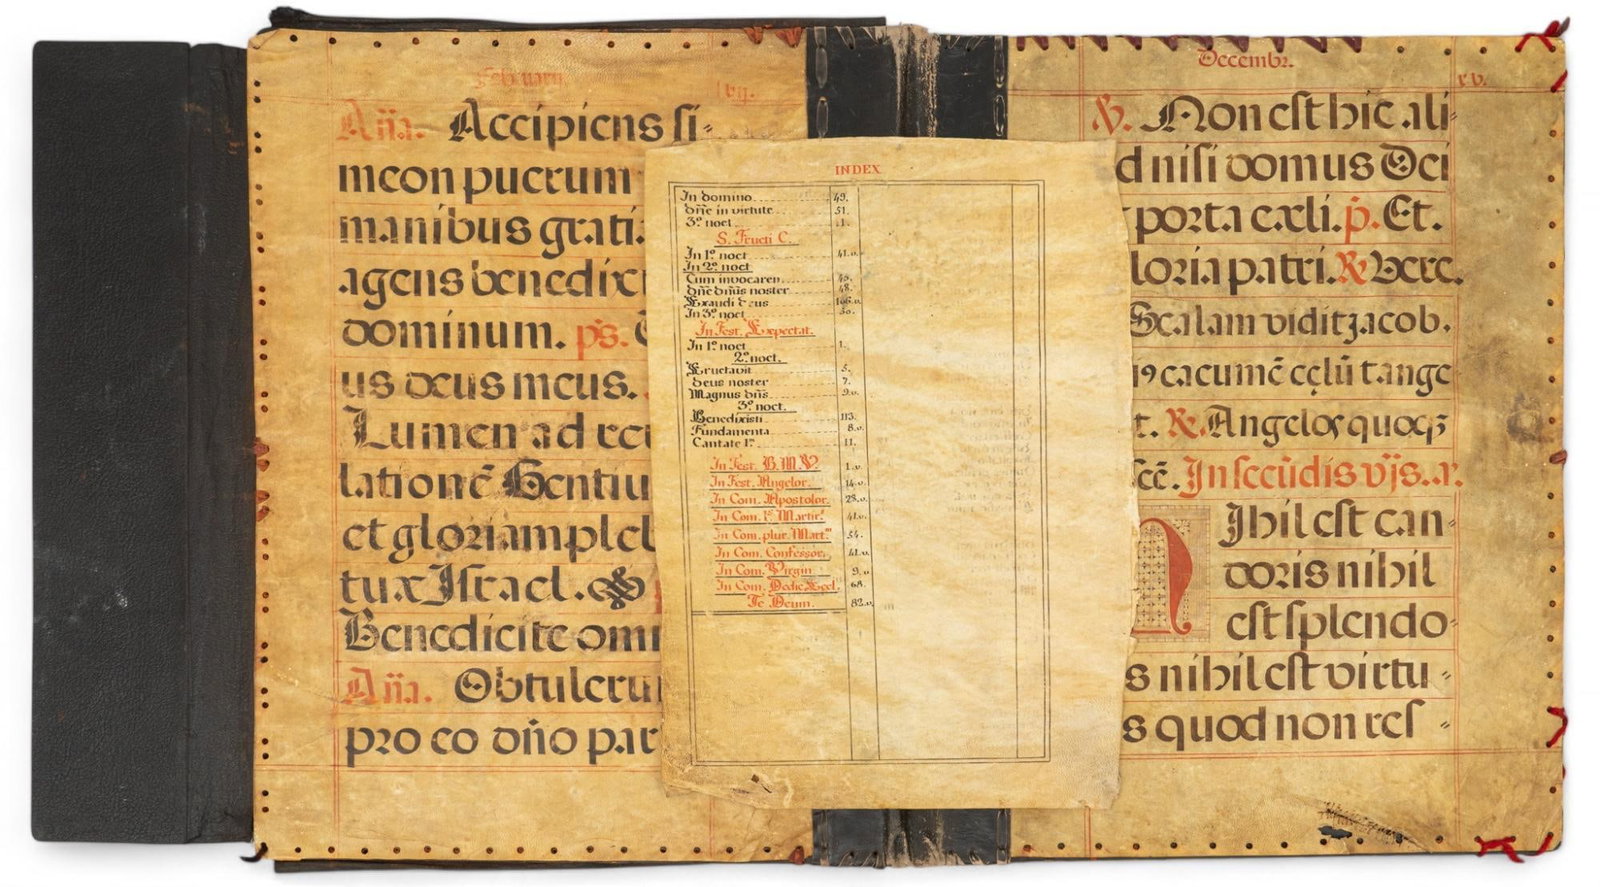 Februarii.
lvij.
Aña. Accipiens si=
meon puerum
manibus grati
agens benedixi
dominum. ps.
us deus meus.
Lumen ad reu
lationē Gentiu
et gloriam pleb
tuæ Israel.
Benedicite omn
Aña. Obtulerun
pro eo dño par
INDEX
In domino 49.
Dñe in virtute 51.
3º noct 1.
S. Fructi C.
In 1º noct 41.v.
In 2º noct
Cum invocarem 45.
Dñe dñus noster 48.
Exaudi Deus 106.v.
In 3º noct 50.
In Fest. Expectat.
In 1º noct 1.
2º noct.
Eructavit 5.
Deus noster 7.
Magnus dñs 9.v.
3º noct.
Benedixisti 113.
Fundamenta 8.v.
Cantate 1º 11.
In Fest. B. M. V. 1.v.
In Fest. Angelor. 14.v.
In Com. Apostolor. 28.v.
In Com. 1º Martir. 41.v.
In Com. plur. Mart. 54.
In Com. Confessor. 41.v.
In Com. Virgin 9.v.
In Com. Dedic. Eccl. 68.
Te Deum. 82.v.
Decembr.
xv.
V. Non est hic ali
d nisi domus Dei
porta cæli. p. Et.
loria patri. R. Vere.
Scalam vidit Jacob.
19 cacumē cęlū tange
t. R. Angelos quoqȝ
scē. In secūdis vjs. a.
Nihil est can=
doris nihil
est splendo=
s nihil est virtu=
s quod non res=